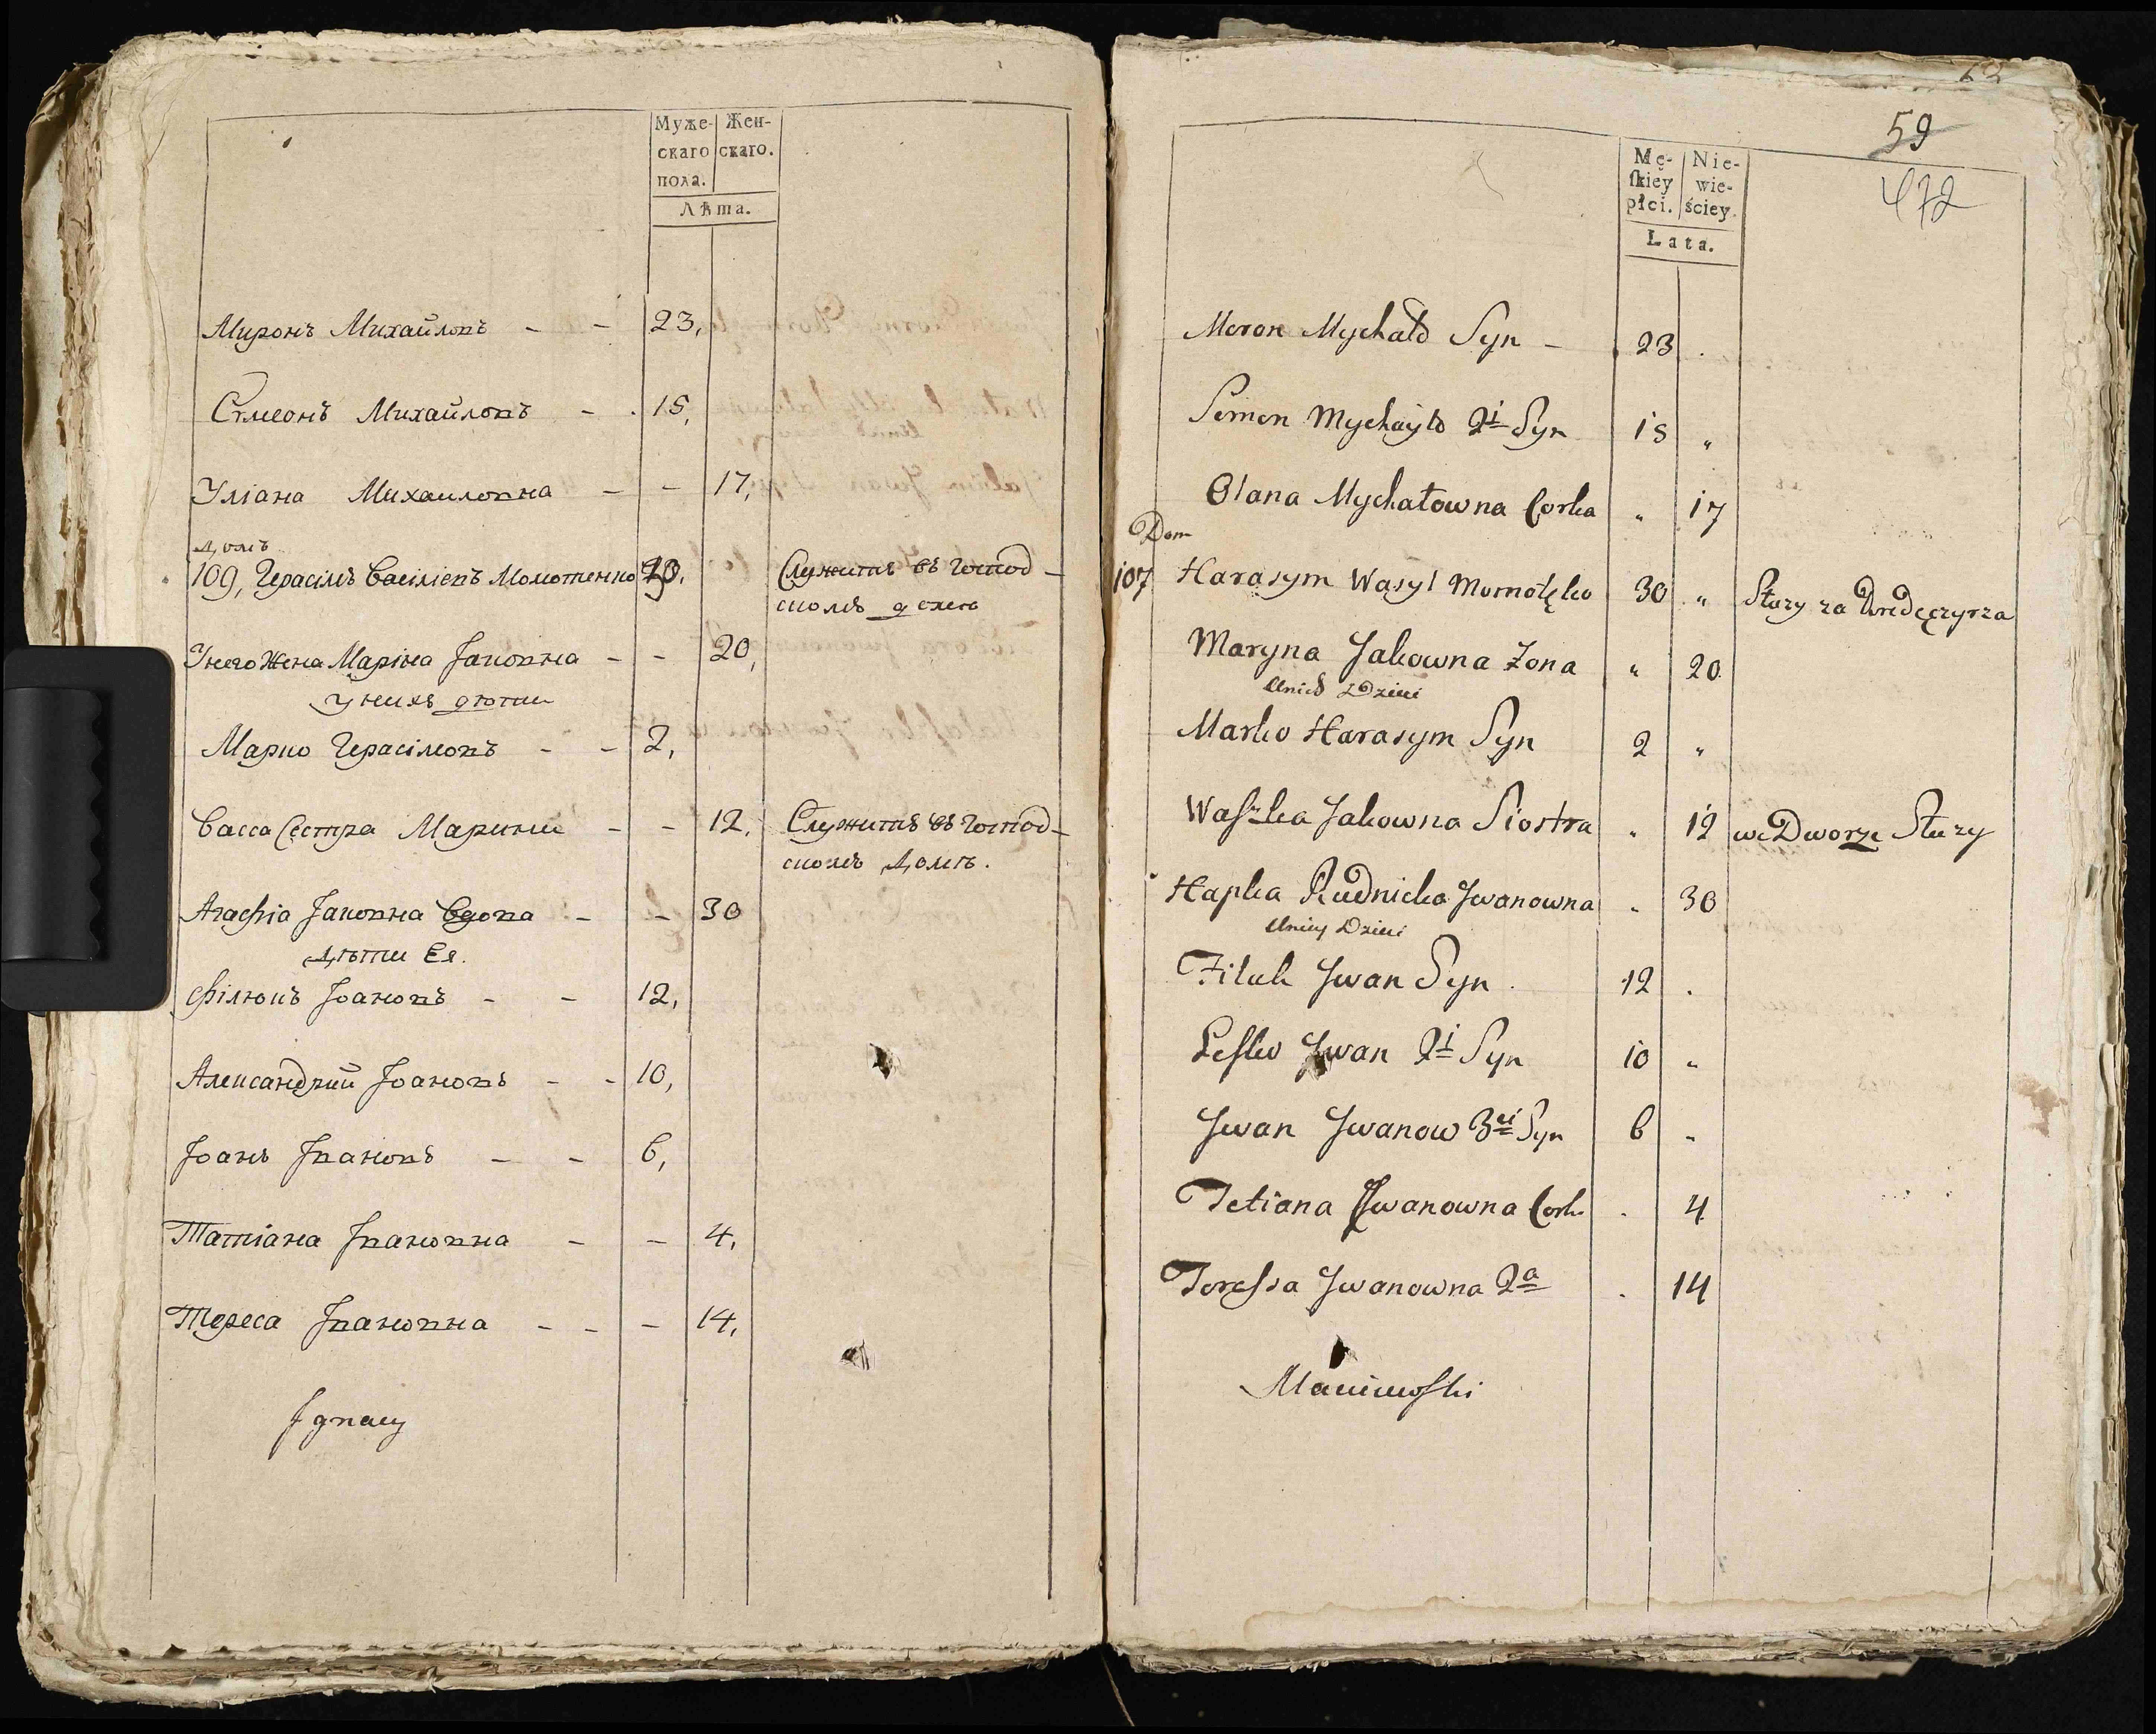 Муже- Жен-
скаго скаго.
пола.
Лѣта.
Миронъ Михайловъ - - 23,
Сѵмеонъ Михайловъ - - 15,
Уліана Михаиловна - - 17,
домъ
109, Герасімъ Васілієвъ Момотенко 30, Служитъ въ господ-
скомъ
Унего жена Маріна Іаковна - - 20,
у нихъ дѣти
Марко Герасімовъ - - 2,
Васса Сестра Марини - - 12, Служитъ въ господ-
скомъ домѣ.
Агафіа Іаковна вдова - - 30
Дѣти Ея.
Філюкъ Іоановъ - - 12,
Александрий Іоановъ - - 10,
Іоанъ Івановъ - - 6,
Татіана Івановна - - 4,
Тереса Івановна - - - 14,
Ignacy
59
472
Mę- Nie-
skiey wie-
płci. ściey.
Lata.
Meron Mychało Syn - 23 .
Semen Mychayło 2i Syn 15 „
Olana Mychałowna Corka „ 17
Dom
107 Harasym Wasyl Momotęko 30 „ Słuzy za
Maryna Jakowna Zona „ 20
Unich Dzieci
Marko Harasym Syn 2 „
Waszka Jakowna Siostra „ 12 we Dworze Słuzy
Hapka Rudnicka Jwanowna „ 30
Uniey Dzieci
Filuk Jwan Syn 12 .
Lesko Jwan 2i Syn 10 „
Jwan Jwanow 3ci Syn 6 „
Tetiana Jwanowna Cork . 4
Teressa Jwanowna 2a . 14